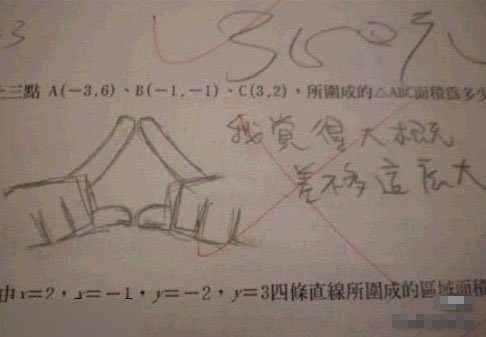 3 350元
上三點 A(-3,6)、B(-1,-1)、C(3,2)，所圍成的△ABC面積為多少
我覺得大概
差不多這麼大
由x=2，x=-1，y=-2，y=3四條直線所圍成的區域面積